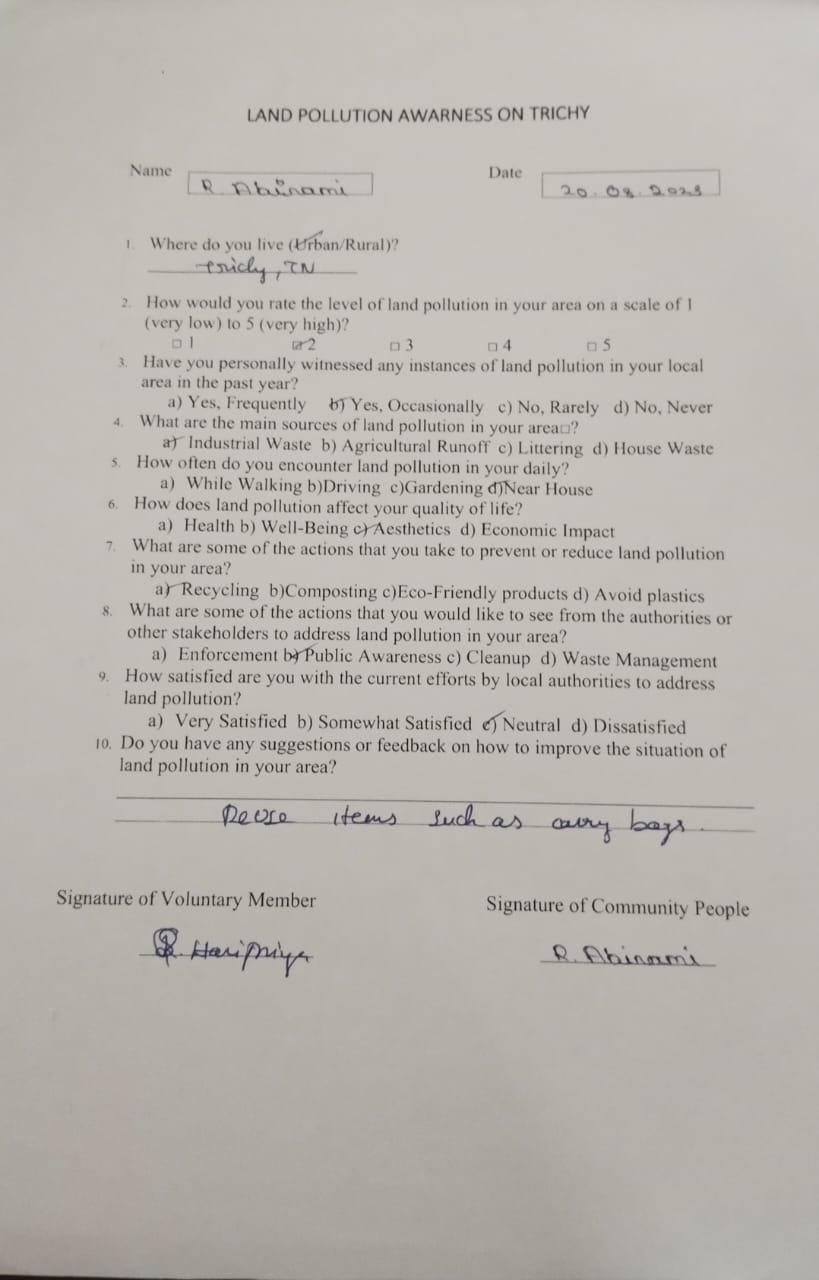 LAND POLLUTION AWARNESS ON TRICHY
Name R Abinami Date 20.08.2023
1. Where do you live (Urban/Rural)?
Trichy, TN
2. How would you rate the level of land pollution in your area on a scale of 1
(very low) to 5 (very high)?
□ 1 ☑ 2 □ 3 □ 4 □ 5
3. Have you personally witnessed any instances of land pollution in your local
area in the past year?
a) Yes, Frequently b) Yes, Occasionally c) No, Rarely d) No, Never
4. What are the main sources of land pollution in your area□?
a) Industrial Waste b) Agricultural Runoff c) Littering d) House Waste
5. How often do you encounter land pollution in your daily?
a) While Walking b)Driving c)Gardening d)Near House
6. How does land pollution affect your quality of life?
a) Health b) Well-Being c) Aesthetics d) Economic Impact
7. What are some of the actions that you take to prevent or reduce land pollution
in your area?
a) Recycling b)Composting c)Eco-Friendly products d) Avoid plastics
8. What are some of the actions that you would like to see from the authorities or
other stakeholders to address land pollution in your area?
a) Enforcement b) Public Awareness c) Cleanup d) Waste Management
9. How satisfied are you with the current efforts by local authorities to address
land pollution?
a) Very Satisfied b) Somewhat Satisfied c) Neutral d) Dissatisfied
10. Do you have any suggestions or feedback on how to improve the situation of
land pollution in your area?
Reuse items such as carry bags.
Signature of Voluntary Member Signature of Community People
Haripriya R. Abinami